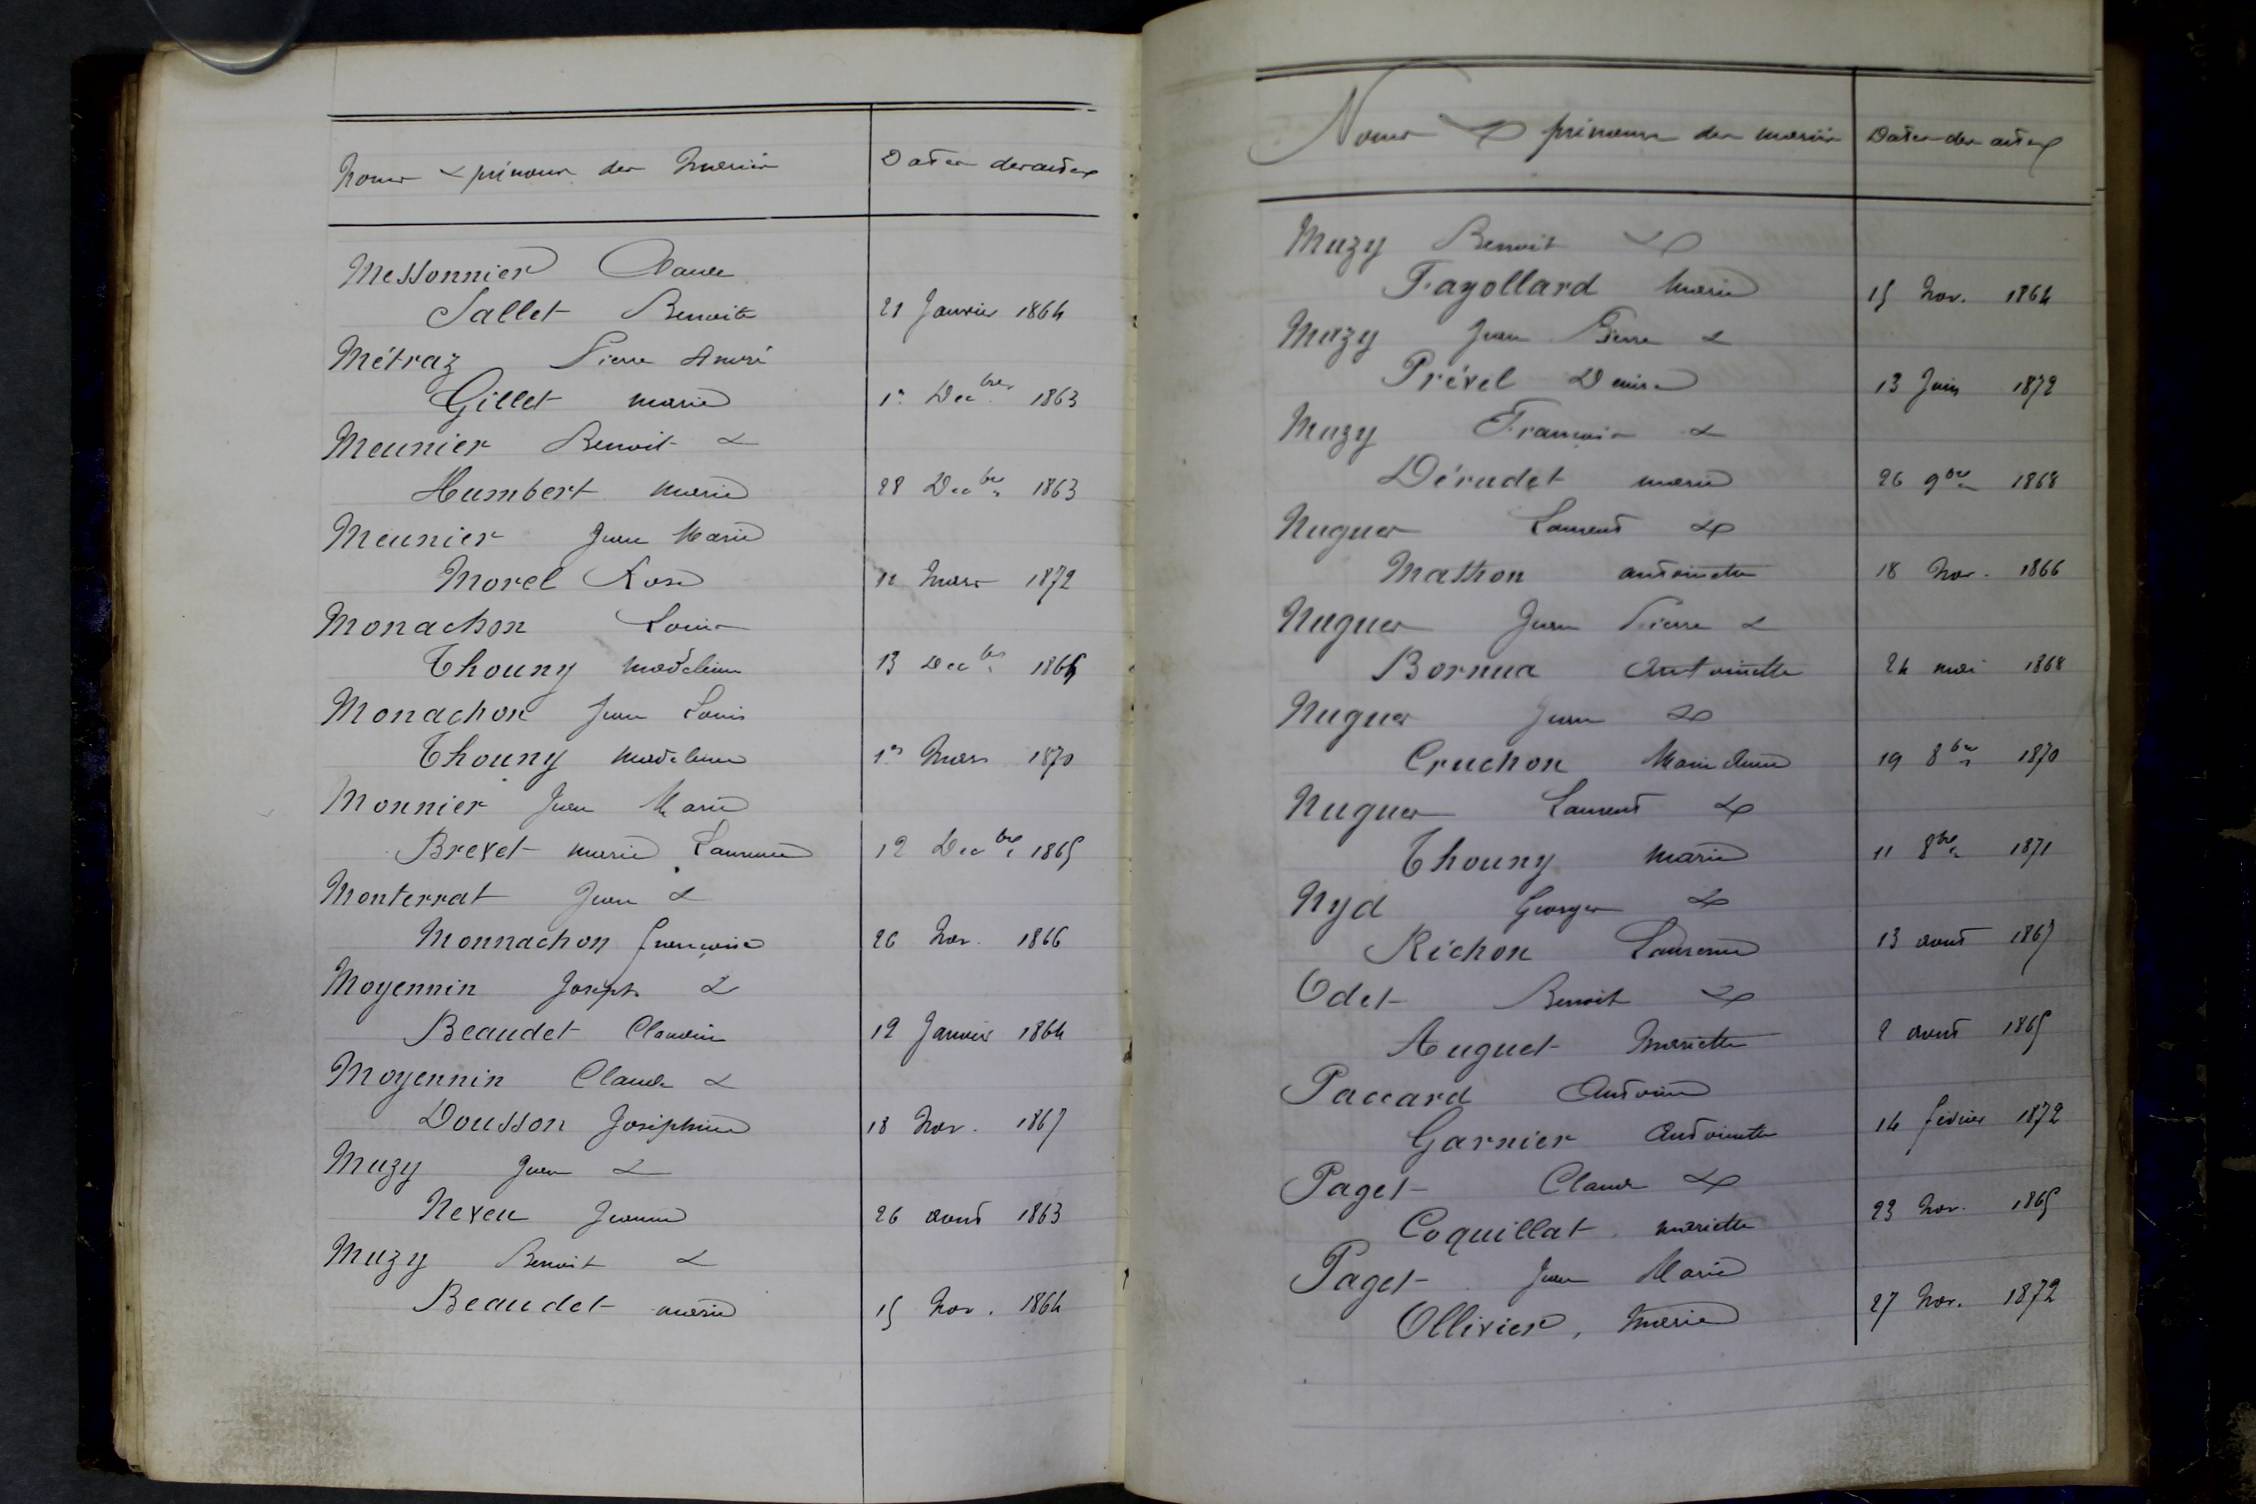 Noms & prénoms des mariés
Dates des actes
Messonnier Claude
Sallet Benoite 21 Janvier 1864
Métraz Pierre André
Gillet marie 1er Decbre 1863
Meunier Benoit &
Humbert marie 28 Decbre 1863
Meunier Jean Marie
Morel Rose 12 mars 1872
Monachon Louis
Thouny madeleine 13 Decbre
Monachon Jean Louis
Thouny madeleine 1er Mars 1870
Monnier Jean Marie
Brevet marie Laurence 12 Decbre 1865
Monterrat Jean &
Monnachon françoise 26 Nov. 1866
Moyennin Joseph &
Beaudet Claudine 12 Janvier 1864
Moyennin Claude &
Dousson Joséphine 18 Nov. 1867
Muzy Jean &
Neveu Jeanne 26 aout 1863
Muzy Benoit &
Beaudet marie 15 Nov. 1864
Noms & prénoms des mariés
Dates des actes
Muzy Benoit &
Fayollard Marie 15 Nov. 1864
Muzy Jean Pierre &
Prével Denise 13 Juin 1872
Muzy François &
Dérudet marie 26 9bre 1868
Nuguer Laurent &
Mathon antoinette 18 Nov. 1866
Nuguer Jean Pierre &
Bornua Antoinette 24 mai 1868
Nuguer Jean &
Cruchon Marie Anne 19 8bre 1870
Nuguer Laurent &
Thouny Marie 11 8bre 1871
Nyd Georges &
Richon Laurence 13 aout 1867
Odet Benoit &
Auguet Mariette 2 aout 1865
Paccard Antoine
Garnier Antoinette 14 février 1872
Paget Claude &
Coquillat mariette 23 Nov. 1865
Paget Jean Marie
Ollivier, Marie 27 Nov. 1872